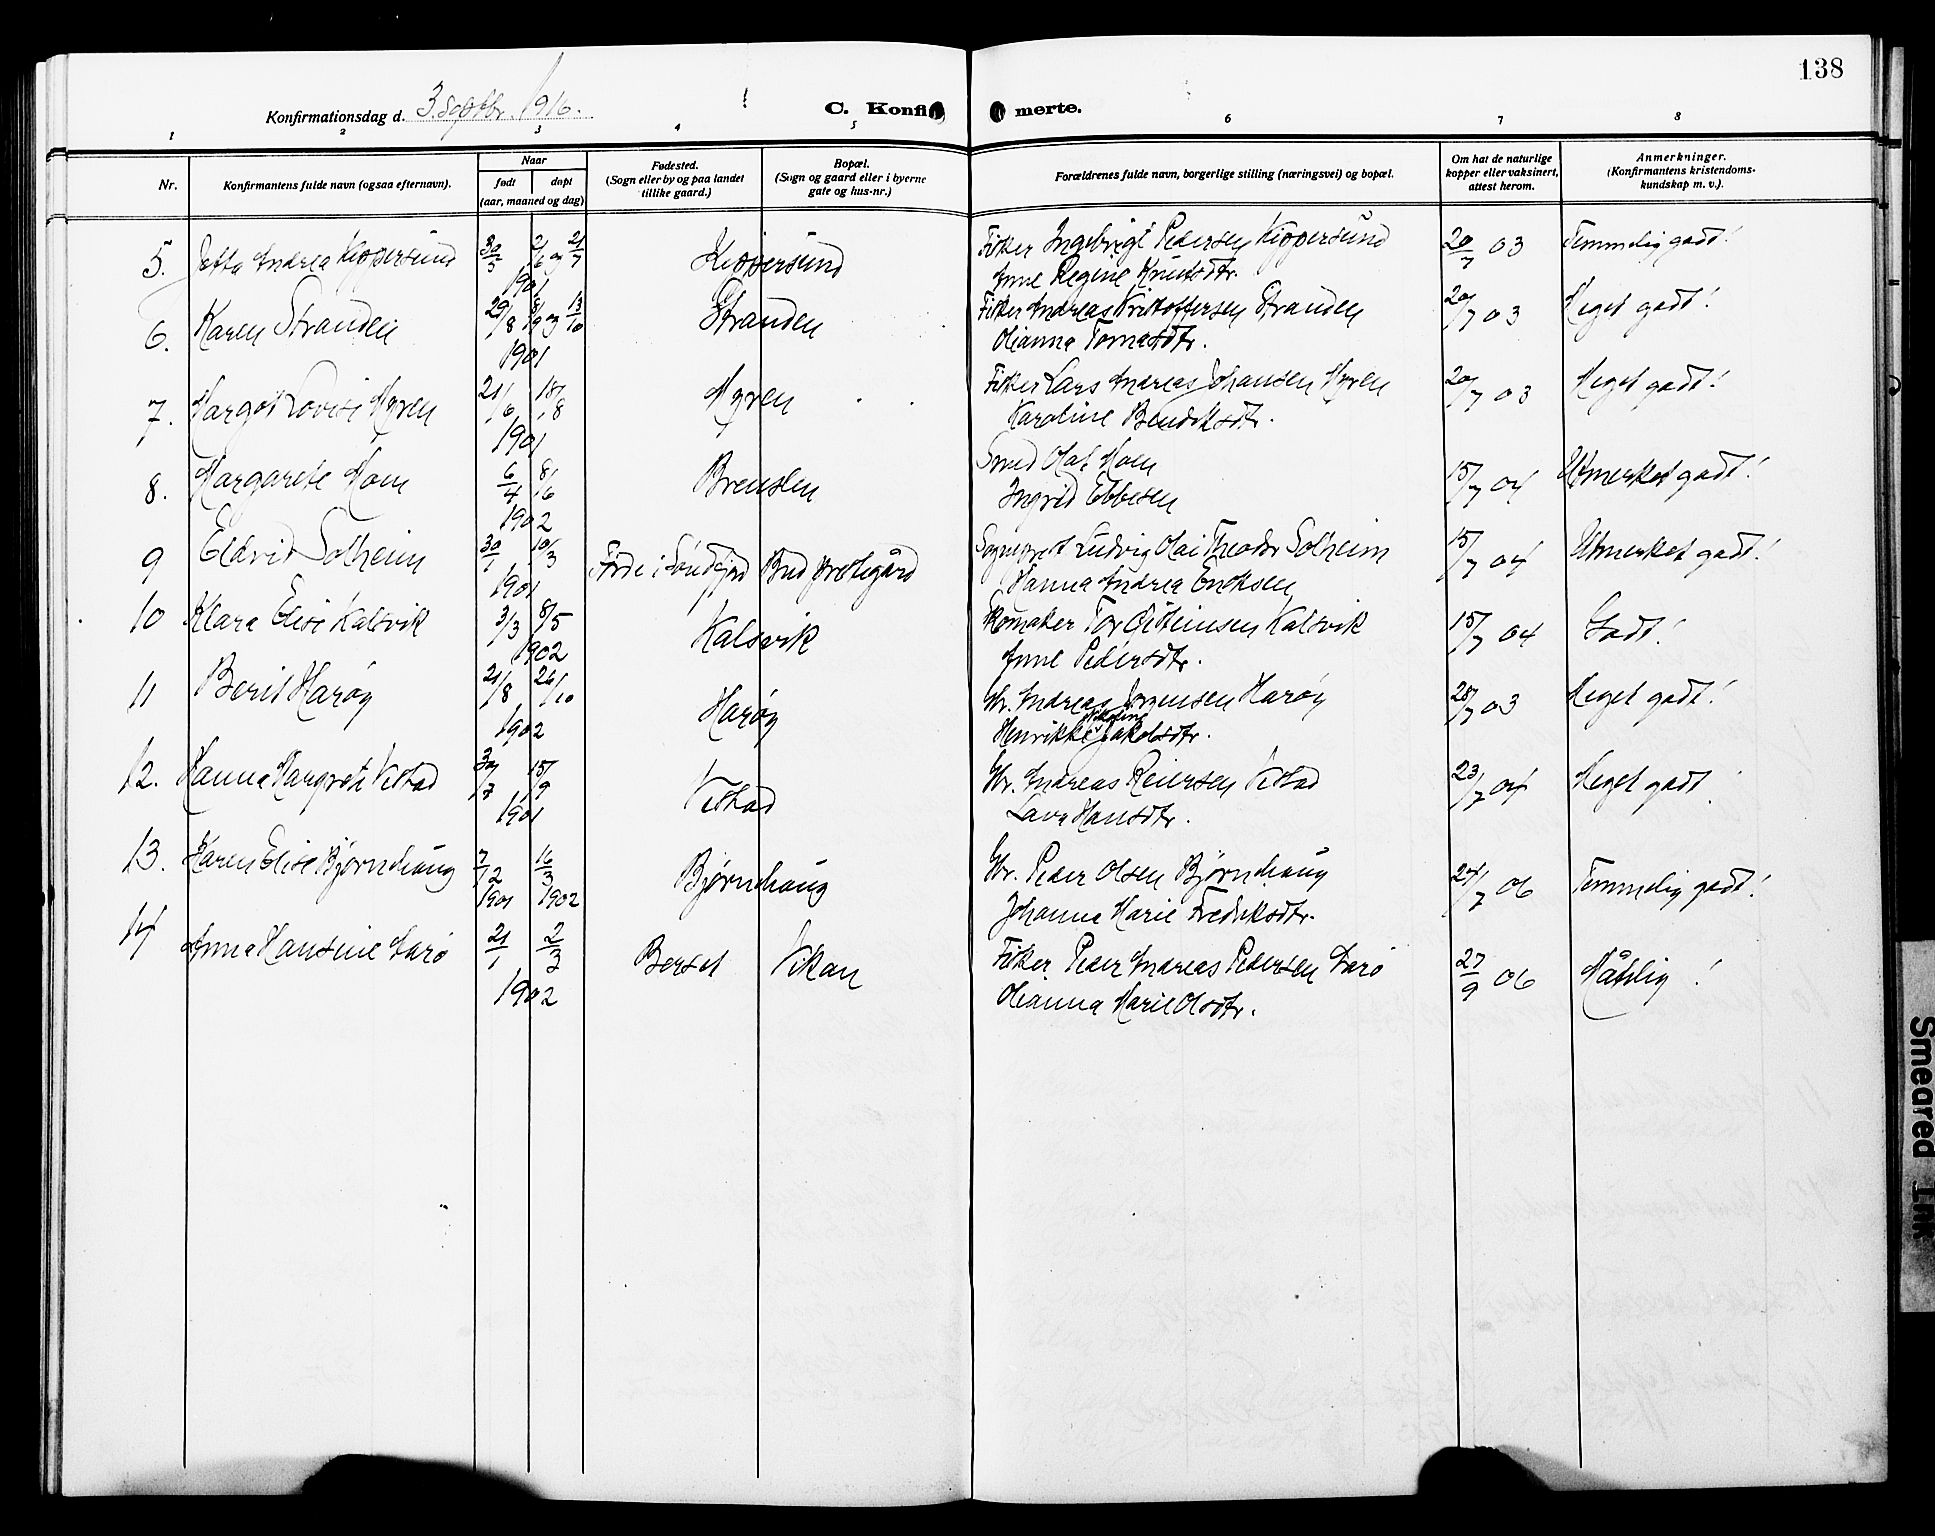 138
Konfirmationsdag d. 3. Septbr. 1916.
C. Konfi merte.
1 2 3 4 5 6 7 8
Nr.
Konfirmantens fulde navn (ogsaa efternavn).
Naar
født døpt
(aar, maaned og dag)
Fødested.
(Sogn eller by og paa landet
tillike gaard.)
Bopæl.
(Sogn og gaard eller i byerne
gate og hus-nr.)
Forældrenes fulde navn, borgerlige stilling (næringsvei) og bopæl.
Om hat de naturlige
kopper eller vaksinert,
attest herom.
Anmerkninger.
(Konfirmantens kristendoms-
kundskap m. v.).
5. Andrea Kjøpersund 30/5 2/6 og 21/7 Kjøpersund Fisker Ingebrigt Pedersen Kjøpersund 20/7 03 Temmelig godt!
1901 Anne Regine Knutsdtr.
6. Karen Stranden 29/8 8/9 og 13/10 Stranden Fisker Andreas Kristoffersen Stranden 20/7 03 Meget godt!
1901 Olianna Tomasdtr.
7. Margot Lovise Myren 21/6 18/8 Myren Fisker Lars Andreas Johansen Myren 20/7 03 Meget godt!
1901 Karoline Bendiksdtr.
8. Margarete Moen 6/4 8/6 Brenslen Smed Olaf Moen 15/7 04 Utmerket godt!
1902 Ingrid Ebbesen
9 Eldrid Solheim 30/1 10/3 Førde i Søndfjord Bud prestegård Sogneprest Ludvig Olai Theodor Solheim 15/7 04 Utmerket godt!
1901 Hanna Andrea Enoksen
10 Klara Elise Kalsvik 3/3 8/5 Kalsvik Skomaker Tor Østeinsen Kalsvik 15/7 04 Godt!
1902 Anne Pedersdtr.
11 Berit Harøy 21/8 26/10 Harøy Gbr. Andreas Jørgensen Harøy 28/7 03 Meget godt!
1902 Henrikke Nikoline Jakobsdtr.
12. Hanna Margrete Vestad 30/7 15/9 Vestad Gbr. Andreas Reiersen Vestad 23/7 04 Meget godt!
1901 Lava Hansdtr.
13. Karen Elise Bjørnehaug 7/12 16/3 Bjørnehaug Gbr. Peder Olsen Bjørnehaug 24/7 06 Temmelig godt!
1901 1902 Johanna Marie Fredriksdtr.
14 Anna Hansine 21/1 2/3 Berset Vikan Fisker Peder Andreas Pedersen 27/9 06 Måtelig!
1902 Olianna Marie Olsdtr.
Smeared Ink